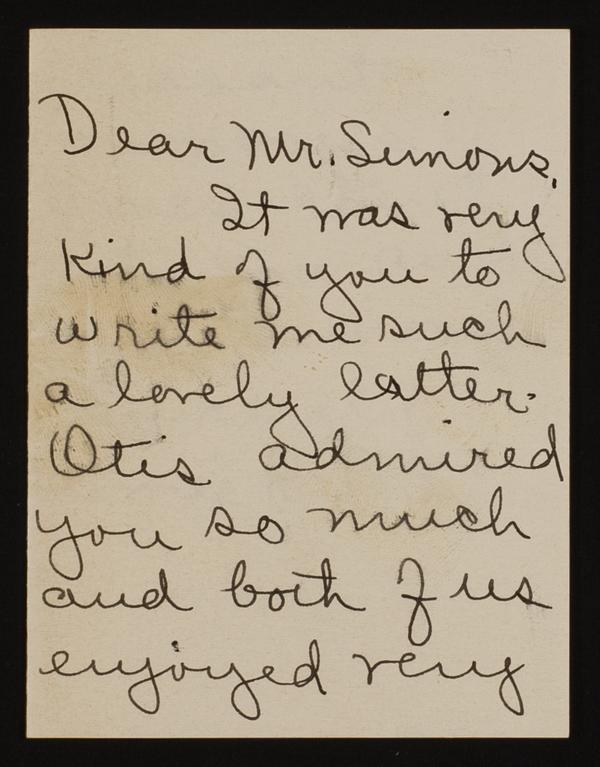 Dear Mr. Simons,
It was very
Kind of you to
write me such
a lovely letter.
Otis admired
you so much
and both of us
enjoyed very